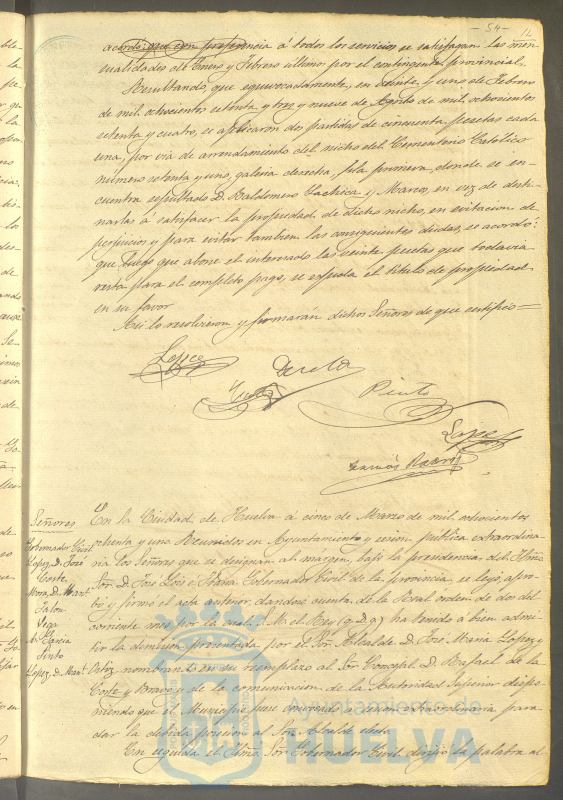 54
acordó: que con preferencia á todos los servicios se satisfagan las men-
sualidades de Enero y Febrero último por el contingente provincial.
Resultando, que equivocadamente, en veinte y uno de Febrero
de mil ochocientos setenta y tres y nueve de Agosto de mil ochocientos
setenta y cuatro, se aplicaron dos partidas de cincuenta pesetas cada
una, por via de arrendamiento del nicho del Cementerio Católico
número setenta y uno, galeria derecha, fila primera, donde se en-
cuentra sepultado D. Baldomero Lachica y Marco, en vez de desti-
narlas á satisfacer la propiedad de dicho nicho, en evitacion de
perjuicios y para evitar tambien las consiguientes dudas, se acordó:
que luego que abone el interesado las veinte pesetas que todavia
resta para el completo pago, se espida el título de propiedad
en su favor
Asi lo resolvieron y firmarán dichos Señores de que certifico=
Lopez
Pinto
Lopez
Señores
Gobernador Civil
Lopez, D. José
Corte
Mora, D. Mant
Jalon
Vega
Garcia
Pinto
Lopez, D. Manl.
En la Ciudad de Huelva á cinco de Marzo de mil ochocientos
ochenta y uno Reunidos en Ayuntamiento y sesion publica extraordina-
ria los Señores que se designan al margen, bajo la presidencia del Iltmo
Sor. D. José Gobernador Civil de la provincia, se leyó, apro-
bó y firmó el acta anterior, dandose cuenta de la Real orden de dos del
corriente mes por la cual S. M. el Rey (q. D. g.) ha tenido á bien admi-
tir la dimision presentada por el Sor. Alcalde D. José Maria Lopez y
Ortiz nombrando en su reemplazo al Sor. Concejal D. Rafael de la
Corte y Bravo y de la comunicacion de la Autoridad Superior dispo-
niendo que el Municipio fuese convocado a sesion extraordinaria para
dar la debida posesion al Sor. Alcalde electo.
En seguida el Iltmo Sor. Gobernador Civil dirijió la palabra al
Ayuntamiento de
HUELVA